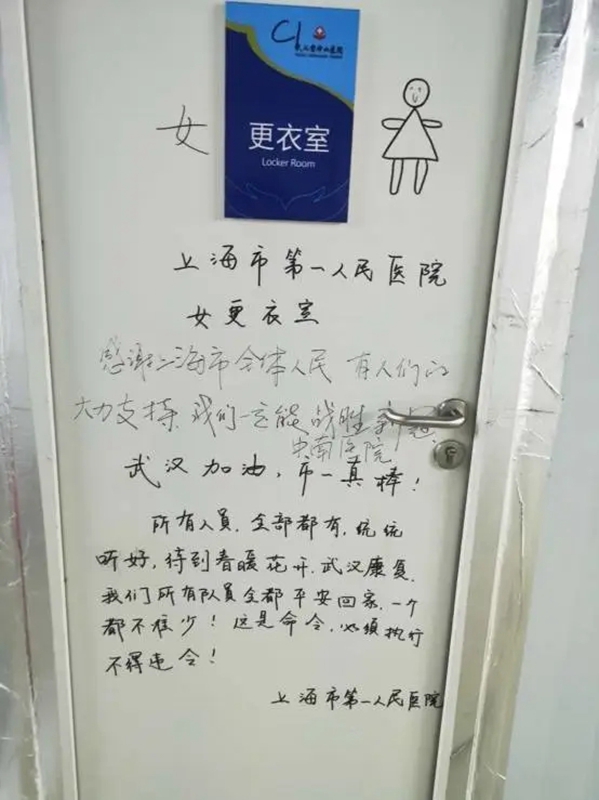 女
更衣室
Locker Room
上海市第一人民医院
女更衣室
感谢上海市全体人民 有人们的
大力支持.我们一定能战胜新冠
中南医院
武汉加油，市一真棒！
所有人员.全部都有.统统
听好，待到春暖花开.武汉康复.
我们所有队员全都平安回家.一个
都不准少！这是命令.必须执行
不得违令！
上海市第一人民医院